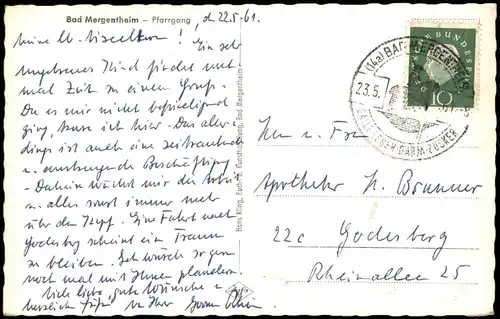 Bad Mergentheim – Pfarrgang
, d 22.5.61.
Meine lb. ! Ein sehr
ungetreues Kind findet mal
mal Zeit zu einem Gruß.
Da es mir nicht
ging, kure ich hier. Das aller-
dings ist auch eine zeitraubende
u. anstrengende Beschäftigung
- Daheim wächst mir die Arbeit
u. alles sonst immer mehr
über den Kopf. Eine Fahrt nach
Godesberg scheint ein Traum
zu bleiben. Ich würde so gern
noch mal mit Ihnen plaudern.
Viele liebe, gute Wünsche u.
herzliche Grüße v. Ihrer
Hans König, Buch- u. Kunsthandlung, Bad Mergentheim
(14a) BAD MERGENTHEIM
23.5.
GALLE LEBER DARM ZUCKER
DEUTSCHE BUNDESPOST
10
Herrn u. Frau
Apotheker H. Brunner
22c Godesberg
Rheinallee 25